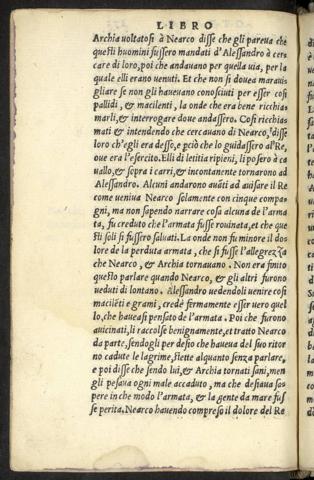 LIBRO
Archia voltatosi à Nearco disse che gli pareva che
questi huomini fussero mandati d'Alessandro à cer
care di loro, poi che andavano per quella uia, per la
quale elli erano uenuti. Et che non si douea maraui
gliare se non gli haueuano conosciuti per esser cosi
pallidi, & macilenti, la onde che era bene richia
marli, & interrogare doue andassero. Cosi richia
mati & intendendo che cercauano di Nearco, disse
loro ch'egli era desso, e pciò che lo guidassero al Re,
oue era l'esercito. Elli di letitia ripieni, li posero à ca
uallo, & sopra i carri, & incontanente tornarono ad
Alessandro. Alcuni andarono auāti ad auisare il Re
come ueniua Nearco solamente con cinque compa
gni, ma non sapendo narrare cosa alcuna de l'arma
ta, fu creduto che l'armata fusse rouinata, et che que
sti soli si fussero saluati. La onde non fu minore il do
lore de la perduta armata, che si fusse l'allegrezza
che Nearco, & Archia tornauano. Non era finito
questo parlare quando Nearco, & gli altri furono
ueduti di lontano. Alessandro uedendoli uenire cosi
macilēti e grami, credé fermamente esser uero quel
lo, che haueasi pensato de l'armata. Poi che furono
auicinati, li raccolse benignamente, et tratto Nearco
da parte, sendogli per desio che haueua del suo ritor
no cadute le lagrime, stette alquanto senza parlare,
e poi disse che sendo lui, & Archia tornati sani, men
gli pesaua ogni male accaduto, ma che desiaua sa=
pere in che modo l'armata, & la gente da mare fus
se perita. Nearco hauendo compreso il dolore del Re